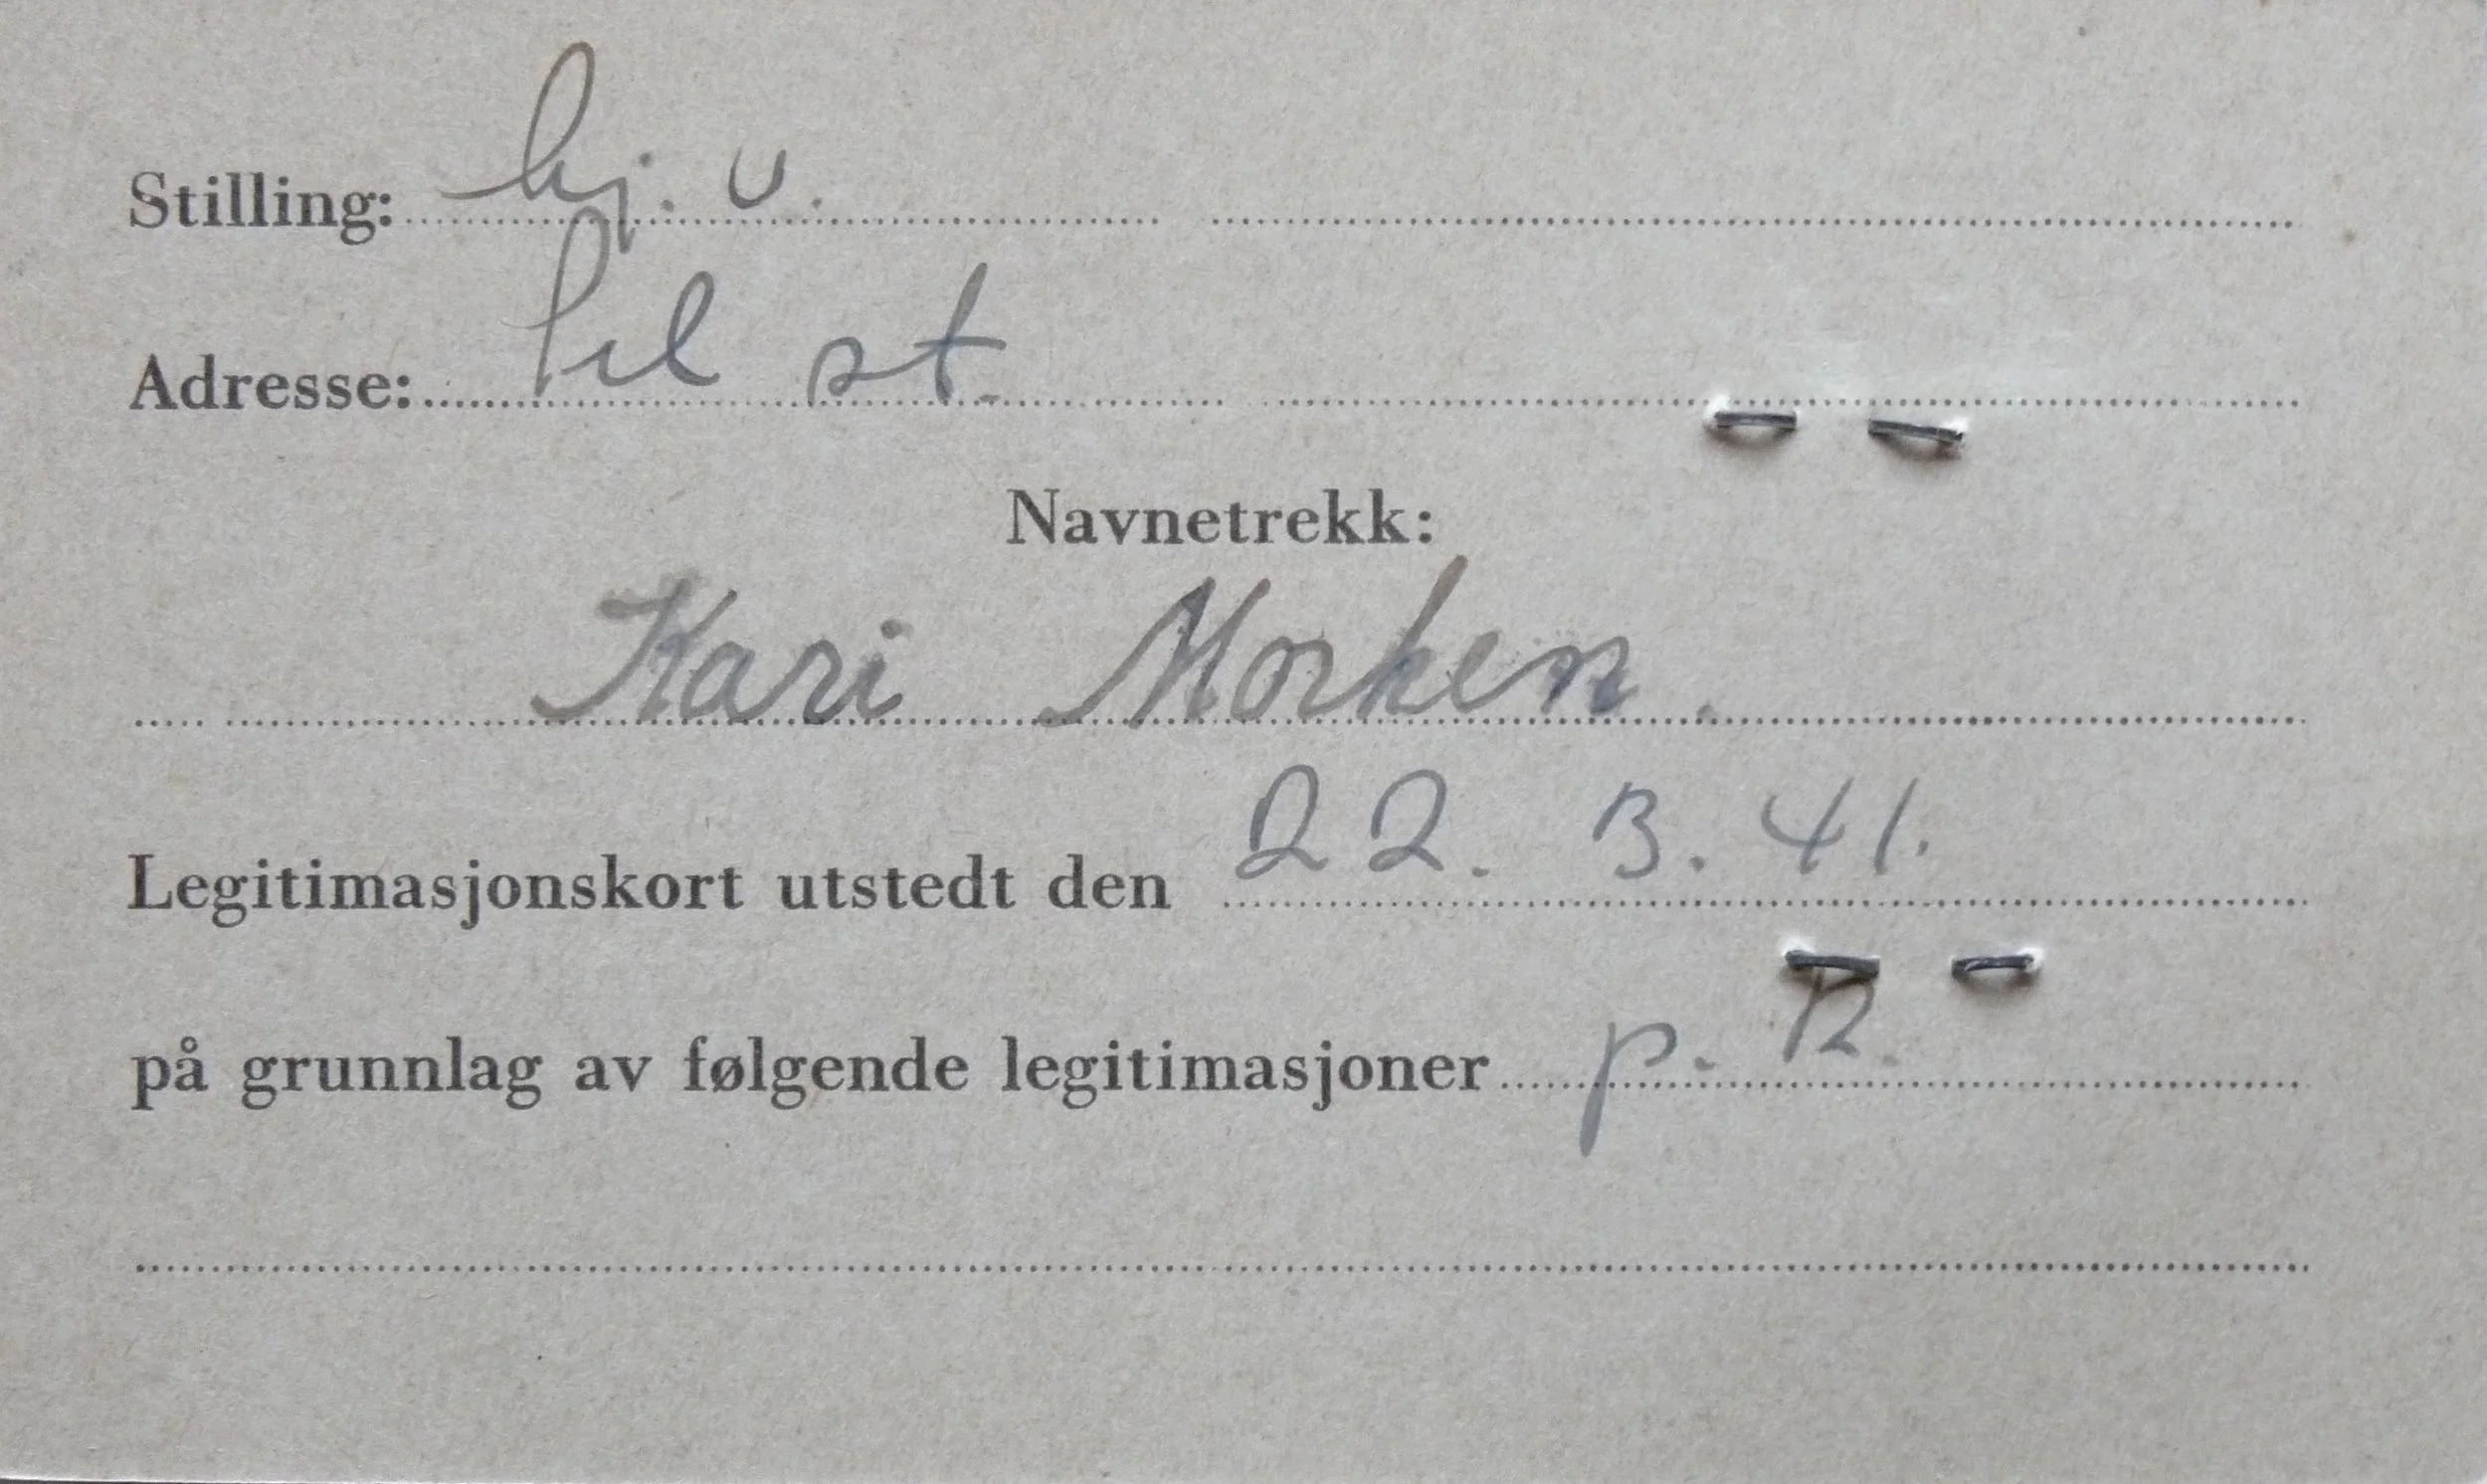 Stilling: hj. v.
Adresse: Fil st.
Navnetrekk:
Kari Morken.
Legitimasjonskort utstedt den 22. 3. 41.
på grunnlag av følgende legitimasjoner p. R.